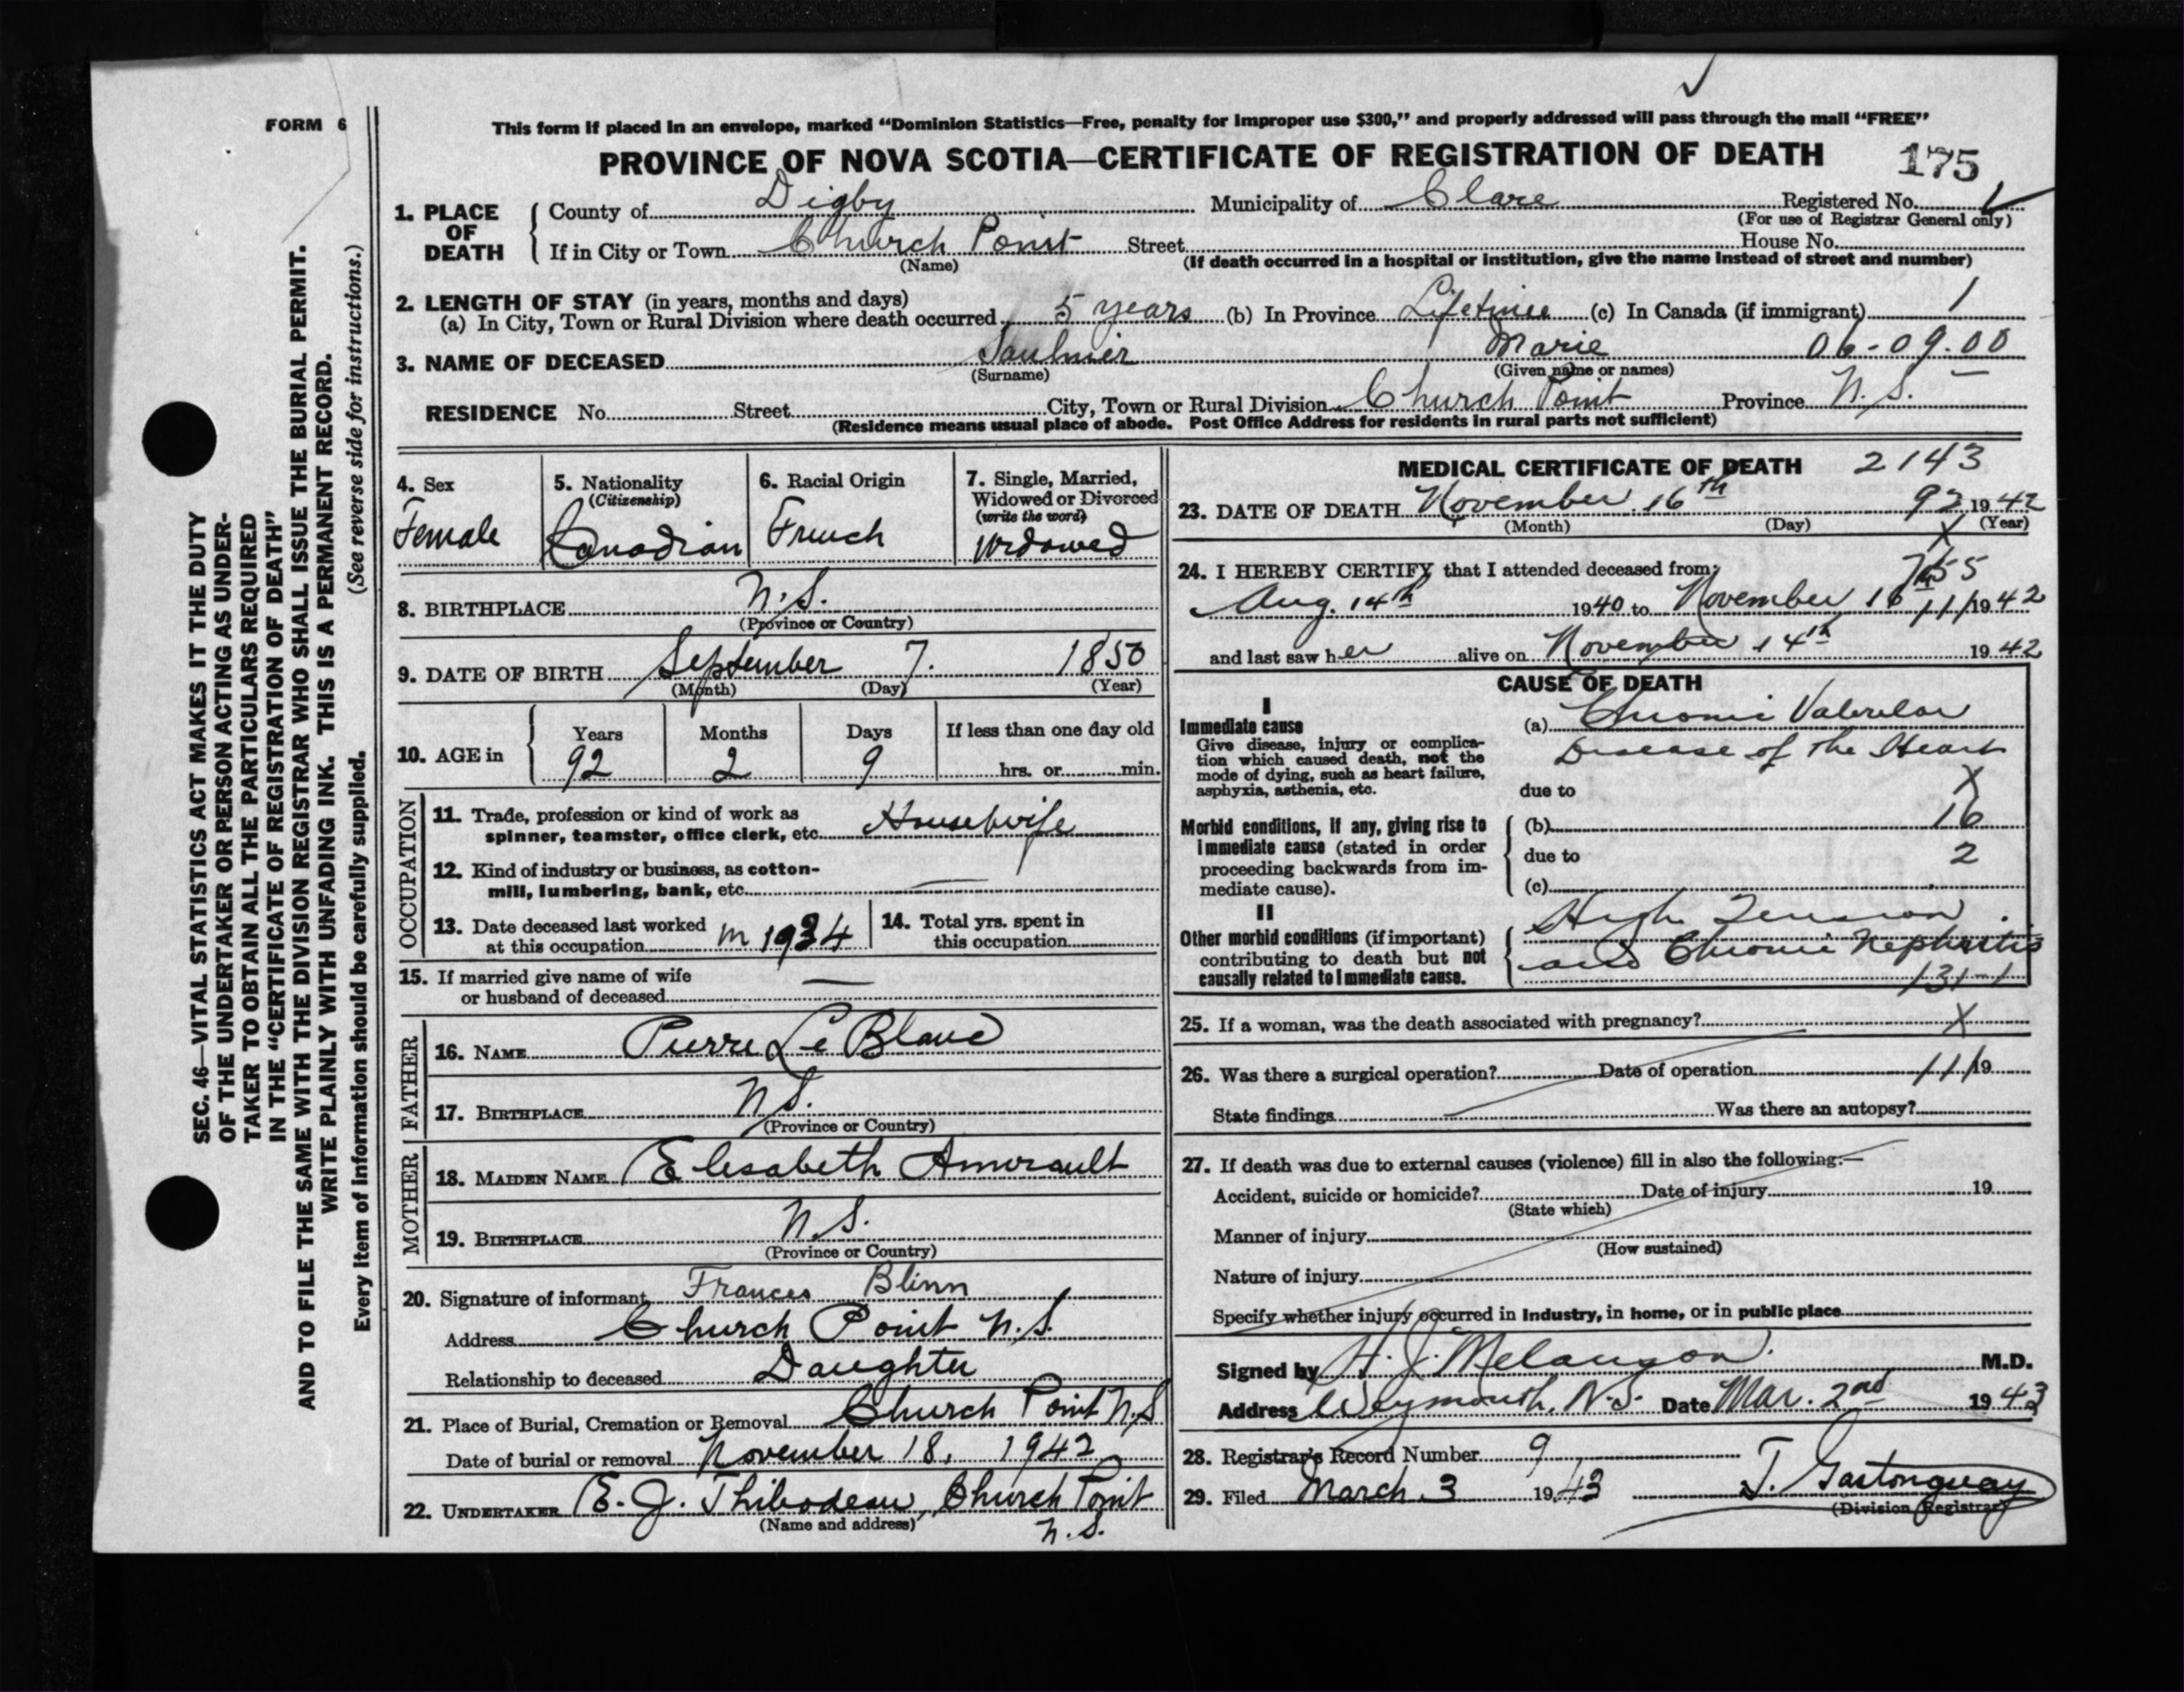 FORM 6
This form if placed in an envelope, marked “Dominion Statistics—Free, penalty for improper use $300,” and properly addressed will pass through the mail “FREE”
PROVINCE OF NOVA SCOTIA—CERTIFICATE OF REGISTRATION OF DEATH 175
SEC. 46—VITAL STATISTICS ACT MAKES IT THE DUTY
OF THE UNDERTAKER OR PERSON ACTING AS UNDER-
TAKER TO OBTAIN ALL THE PARTICULARS REQUIRED
IN THE “CERTIFICATE OF REGISTRATION OF DEATH”
AND TO FILE THE SAME WITH THE DIVISION REGISTRAR WHO SHALL ISSUE THE BURIAL PERMIT.
WRITE PLAINLY WITH UNFADING INK. THIS IS A PERMANENT RECORD.
Every item of information should be carefully supplied. (See reverse side for instructions.)
1. PLACE OF DEATH
County of Digby Municipality of Clare Registered No.
(For use of Registrar General only)
If in City or Town Church Point Street House No.
(Name) (If death occurred in a hospital or institution, give the name instead of street and number)
2. LENGTH OF STAY (in years, months and days)
(a) In City, Town or Rural Division where death occurred 5 years (b) In Province Lifetime (c) In Canada (if immigrant) 1
3. NAME OF DECEASED Saulnier Marie 06-09.00
(Surname) (Given name or names)
RESIDENCE No. Street City, Town or Rural Division Church Point Province N.S.
(Residence means usual place of abode. Post Office Address for residents in rural parts not sufficient)
4. Sex
Female
5. Nationality
(Citizenship)
Canadian
6. Racial Origin
French
7. Single, Married,
Widowed or Divorced
(write the word)
Widowed
8. BIRTHPLACE N.S.
(Province or Country)
9. DATE OF BIRTH September 7. 1850
(Month) (Day) (Year)
10. AGE in Years Months Days If less than one day old
92 2 9 hrs. or min.
OCCUPATION
11. Trade, profession or kind of work as
spinner, teamster, office clerk, etc. Housewife
12. Kind of industry or business, as cotton-
mill, lumbering, bank, etc. —
13. Date deceased last worked
at this occupation in 1934
14. Total yrs. spent in
this occupation
15. If married give name of wife
or husband of deceased —
FATHER
16. NAME Pierre Le Blanc
17. BIRTHPLACE N.S.
(Province or Country)
MOTHER
18. MAIDEN NAME Elesabeth Amirault
19. BIRTHPLACE N.S.
(Province or Country)
20. Signature of informant Frances Blinn
Address Church Point N.S.
Relationship to deceased Daughter
21. Place of Burial, Cremation or Removal Church Point N.S
Date of burial or removal November 18, 1942
22. UNDERTAKER E. J. Thibodeau, Church Point
(Name and address) N.S.
MEDICAL CERTIFICATE OF DEATH 2143
23. DATE OF DEATH November 16th 92 1942
(Month) (Day) X (Year)
24. I HEREBY CERTIFY that I attended deceased from:
Aug. 14th 1940 to November 16 1942
and last saw her alive on November 14th 1942
CAUSE OF DEATH
I
Immediate cause
Give disease, injury or complica-
tion which caused death, not the
mode of dying, such as heart failure,
asphyxia, asthenia, etc.
(a) Chronic Valvular
Disease of the Heart
due to X
Morbid conditions, if any, giving rise to
immediate cause (stated in order
proceeding backwards from im-
mediate cause).
(b) 16
due to 2
(c)
II
Other morbid conditions (if important)
contributing to death but not
causally related to immediate cause.
High Tension
and Chronic Nephritis
131-1
25. If a woman, was the death associated with pregnancy? X
26. Was there a surgical operation? Date of operation 19
State findings Was there an autopsy?
27. If death was due to external causes (violence) fill in also the following:—
Accident, suicide or homicide? Date of injury 19
(State which)
Manner of injury
(How sustained)
Nature of injury
Specify whether injury occurred in industry, in home, or in public place
Signed by H. J. Melançon M.D.
Address Weymouth, N.S. Date Mar. 2nd 1943
28. Registrar's Record Number 9
29. Filed March 3 1943 J. Gastonguay
(Division Registrar)